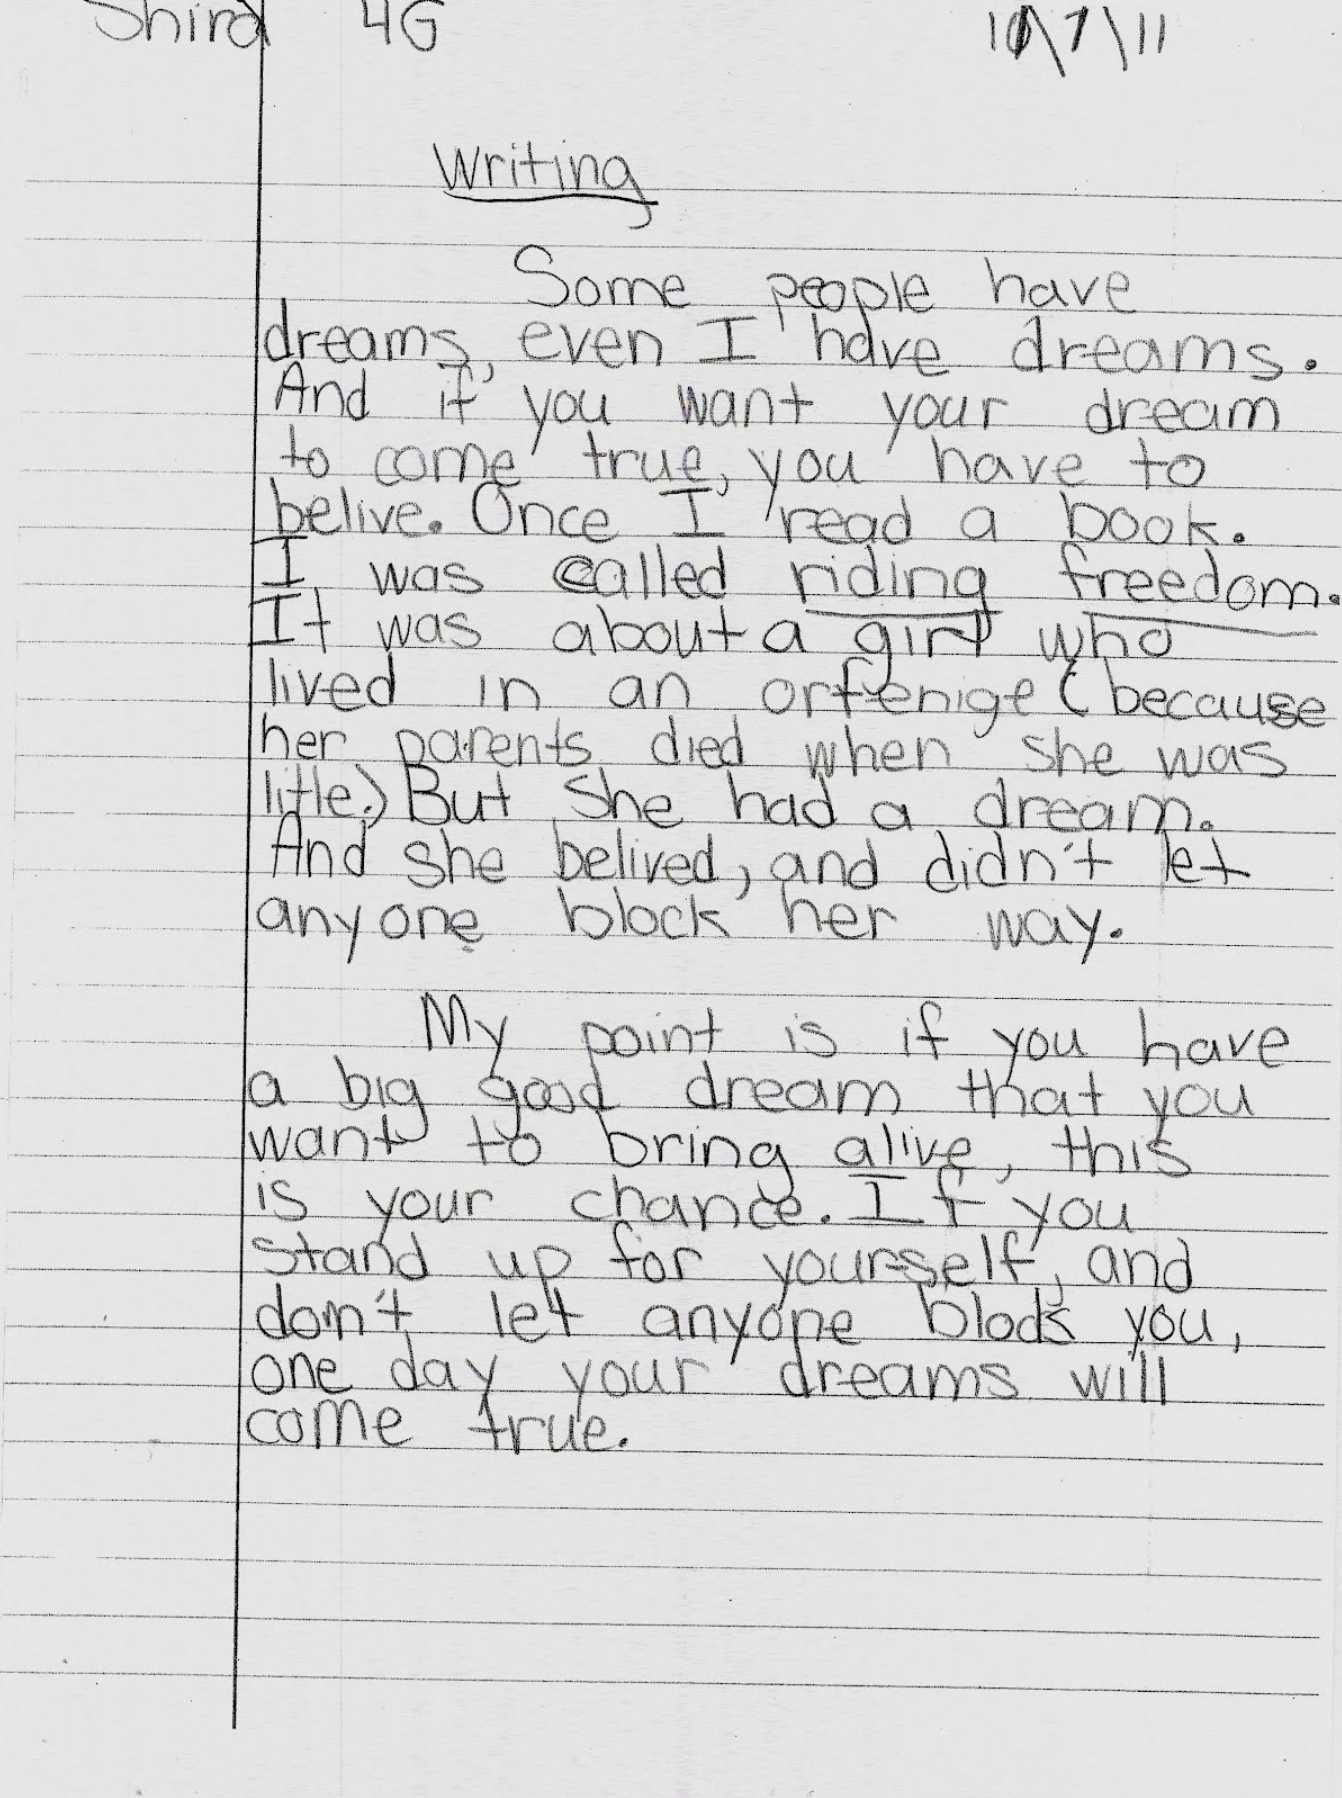 Shira 4G 10\7\11
Writing
Some people have
dreams, even I have dreams.
And if you want your dream
to come true, you have to
belive. Once I read a book.
I was called riding freedom.
It was about a girl who
lived in an orfenige (because
her parents died when she was
litle.) But she had a dream.
And she belived, and didn't let
anyone block her way.
My point is if you have
a big good dream that you
want to bring alive, this
is your chance. If you
stand up for yourself, and
don't let anyone block you,
one day your dreams will
come true.